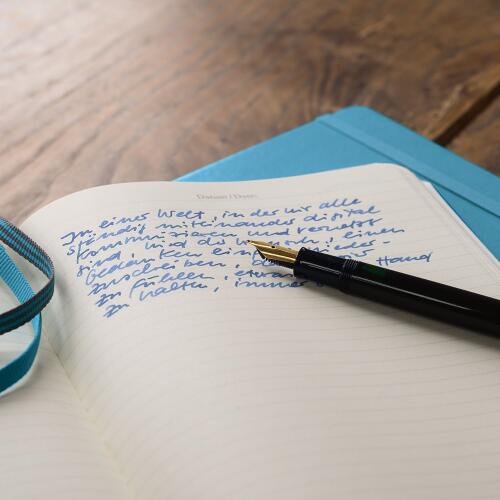 Datum / Date:
In einer Welt, in der wir alle
ständig miteinander digital
kommunizieren und vernetzt
sind, wird der Wunsch, einen
Gedanken nieder-
zuschreiben, Hand
zu fühlen, etwas
zu halten, immer